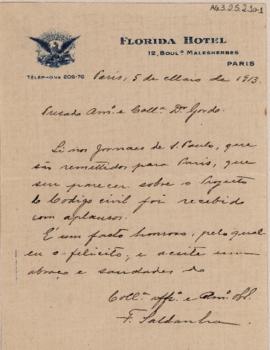 AG3.2.5.2.30-1
FLORIDA HOTEL
12, BOULD MALESHERBES
PARIS
TÉLÉPHONE 209-70
Paris, 5 de Maio de 1913.
Presado Amo. e Collа. Dr. Gordo
Li nos jornaes de S. Paulo, que
são remettidos para Paris, que
seu parecer sobre o Projecto
do Codigo civil foi recebido
com aplausos.
É um facto honroso, pelo qual
eu o felicito, e aceite um
abraço e saudades do
Colla. affo. e Amo.
F. Saldanha